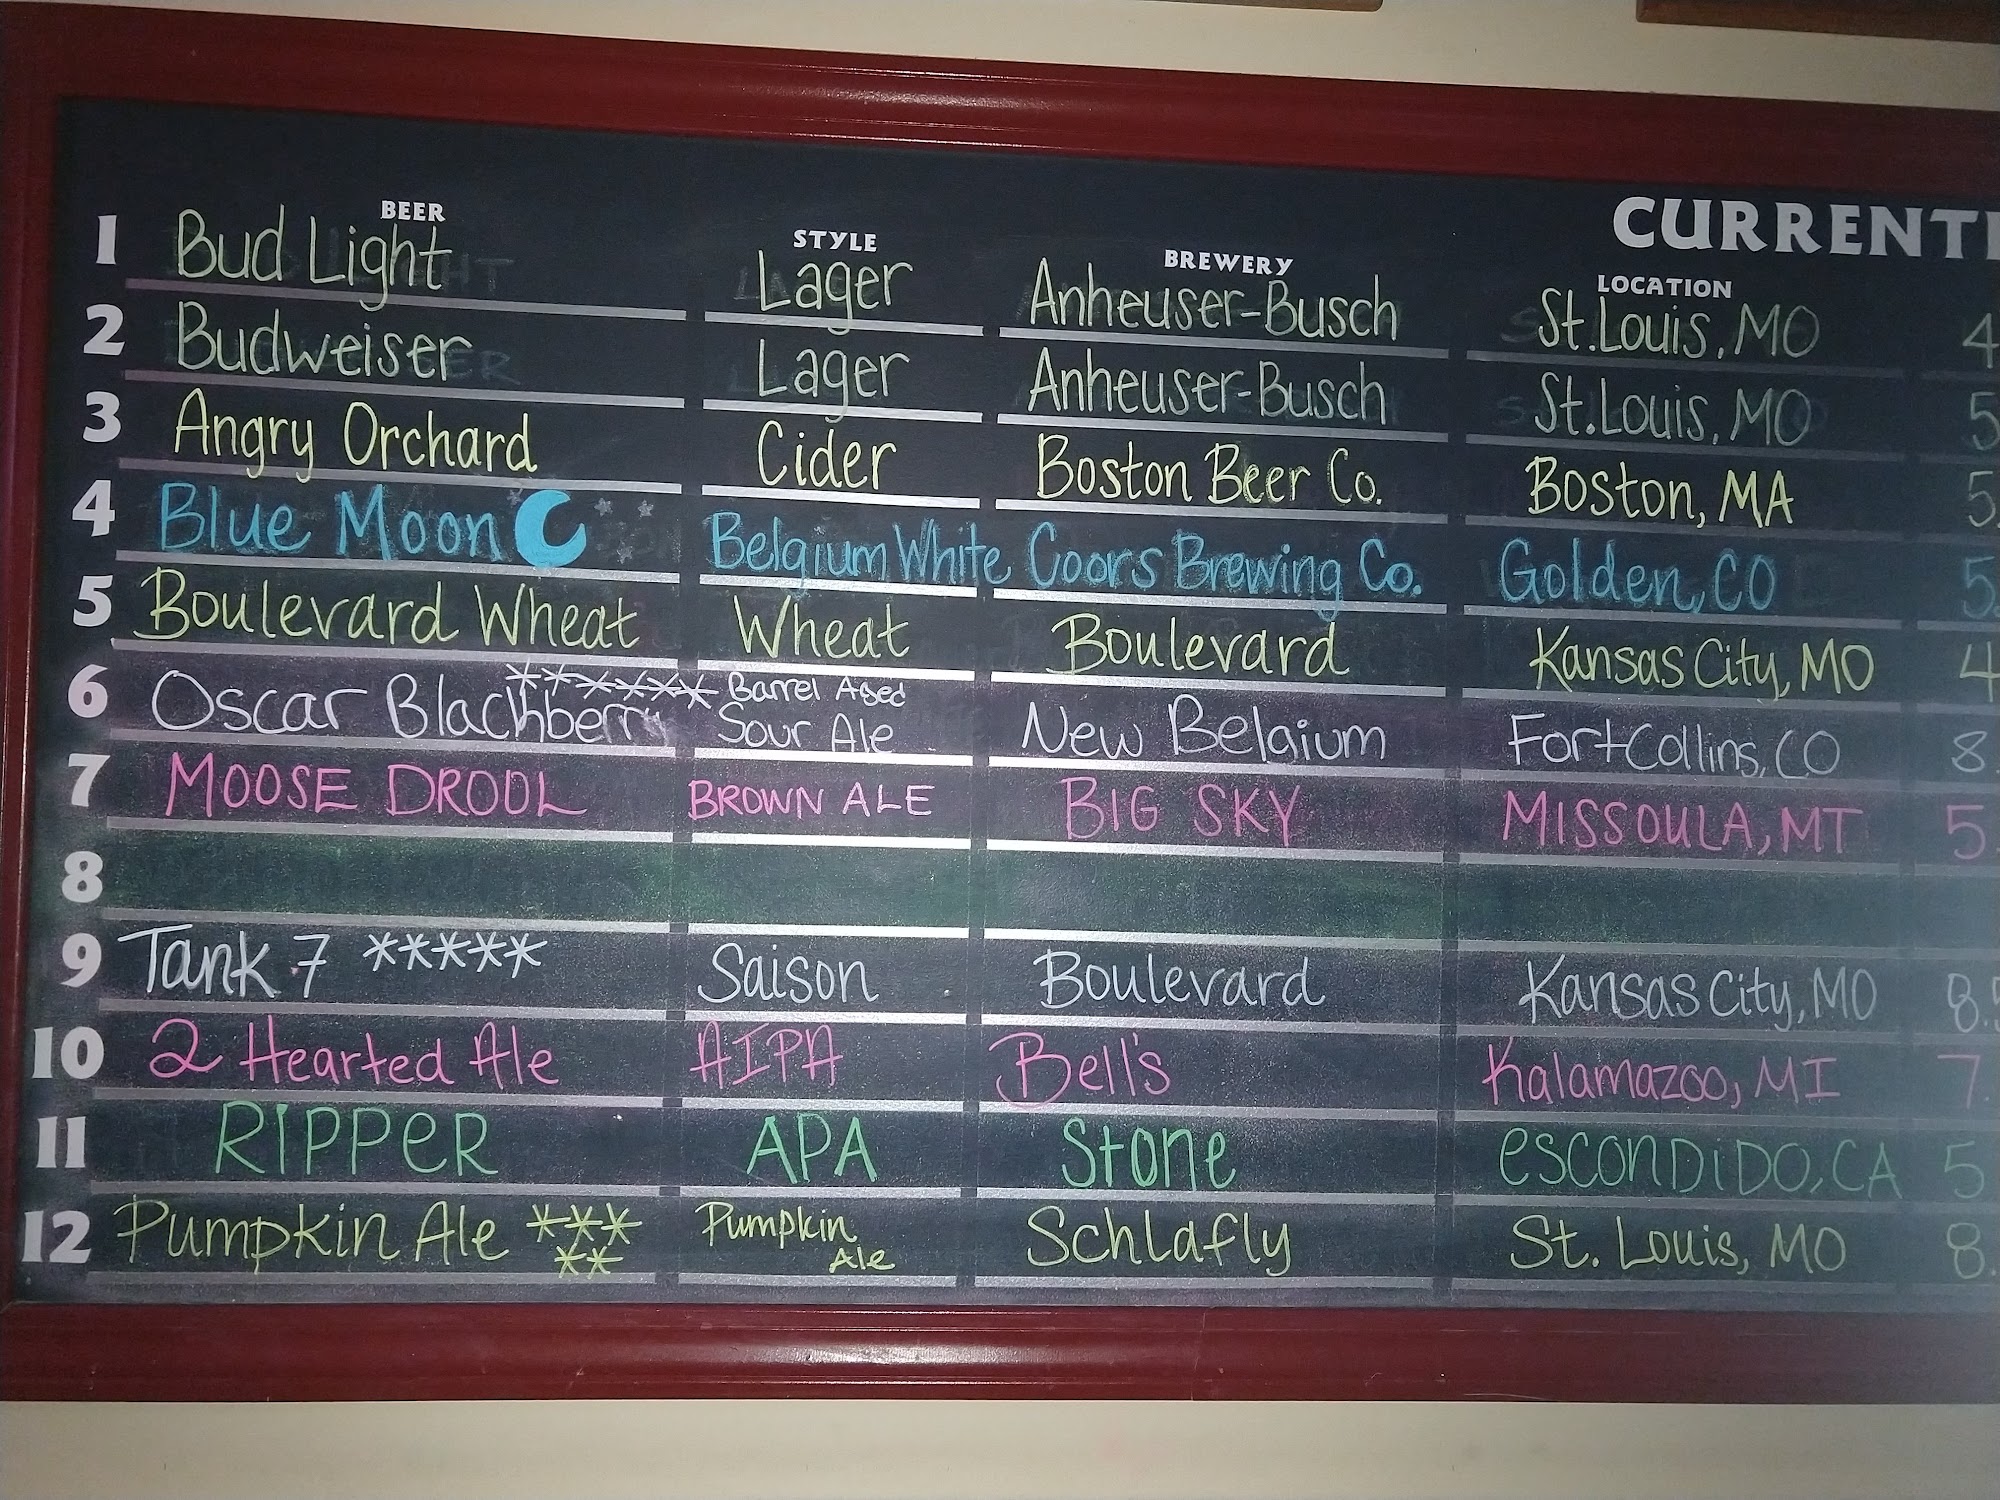 CURRENTL
BEER STYLE BREWERY LOCATION
1 Bud Light Lager Anheuser-Busch St. Louis, MO 4
2 Budweiser Lager Anheuser-Busch St. Louis, MO 5
3 Angry Orchard Cider Boston Beer Co. Boston, MA 5.
4 Blue Moon Belgium White Coors Brewing Co. Golden, CO 5.
5 Boulevard Wheat Wheat Boulevard Kansas City, MO 4
6 Oscar Blackberry ****** Barrel Aged Sour Ale New Belgium Fort Collins, CO 8.
7 MOOSE DROOL BROWN ALE BIG SKY MISSOULA, MT 5.
8
9 Tank 7 ***** Saison Boulevard Kansas City, MO 8.5
10 2 Hearted Ale AIPA Bell's Kalamazoo, MI 7.
11 RIPPER APA Stone ESCONDIDO, CA 5
12 Pumpkin Ale ***** Pumpkin Ale Schlafly St. Louis, MO 8.